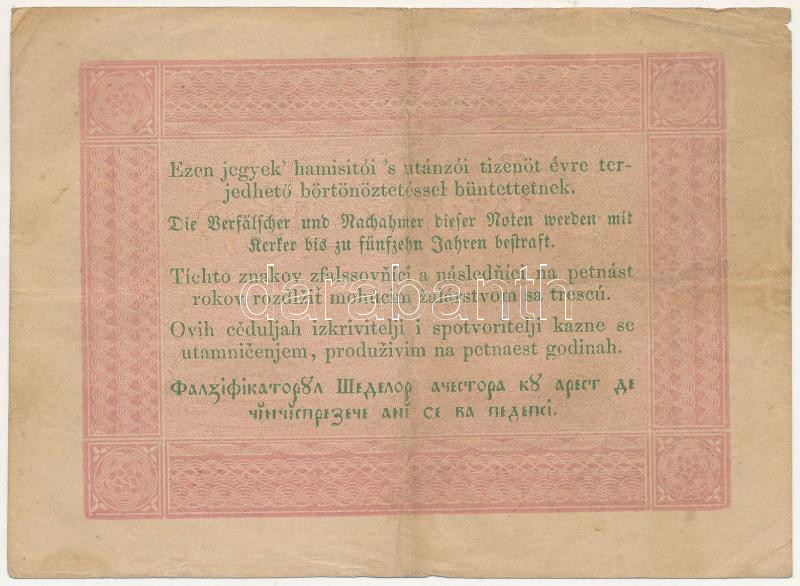 Ezen jegyek' hamisitói 's utánzói tizenöt évre ter-
jedhető börtönöztetéssel büntettetnek.
Die Verfälscher und Nachahmer dieser Noten werden mit
Kerker bis zu fünfzehn Jahren bestraft.
Tíchto znakov zfalssovňíci a následňíci na petnást
rokov rozdlžiť mohucím žalárstvom sa trescú.
Ovih cěduljah izkrivitelji i spotvoritelji kazne se
utamničenjem, produživim na petnaest godinah.
Фалзіфікаторȣл Шеделор ачестора кȣ арест де
чінчіспрезече ані се ва педепсі.
darabanth